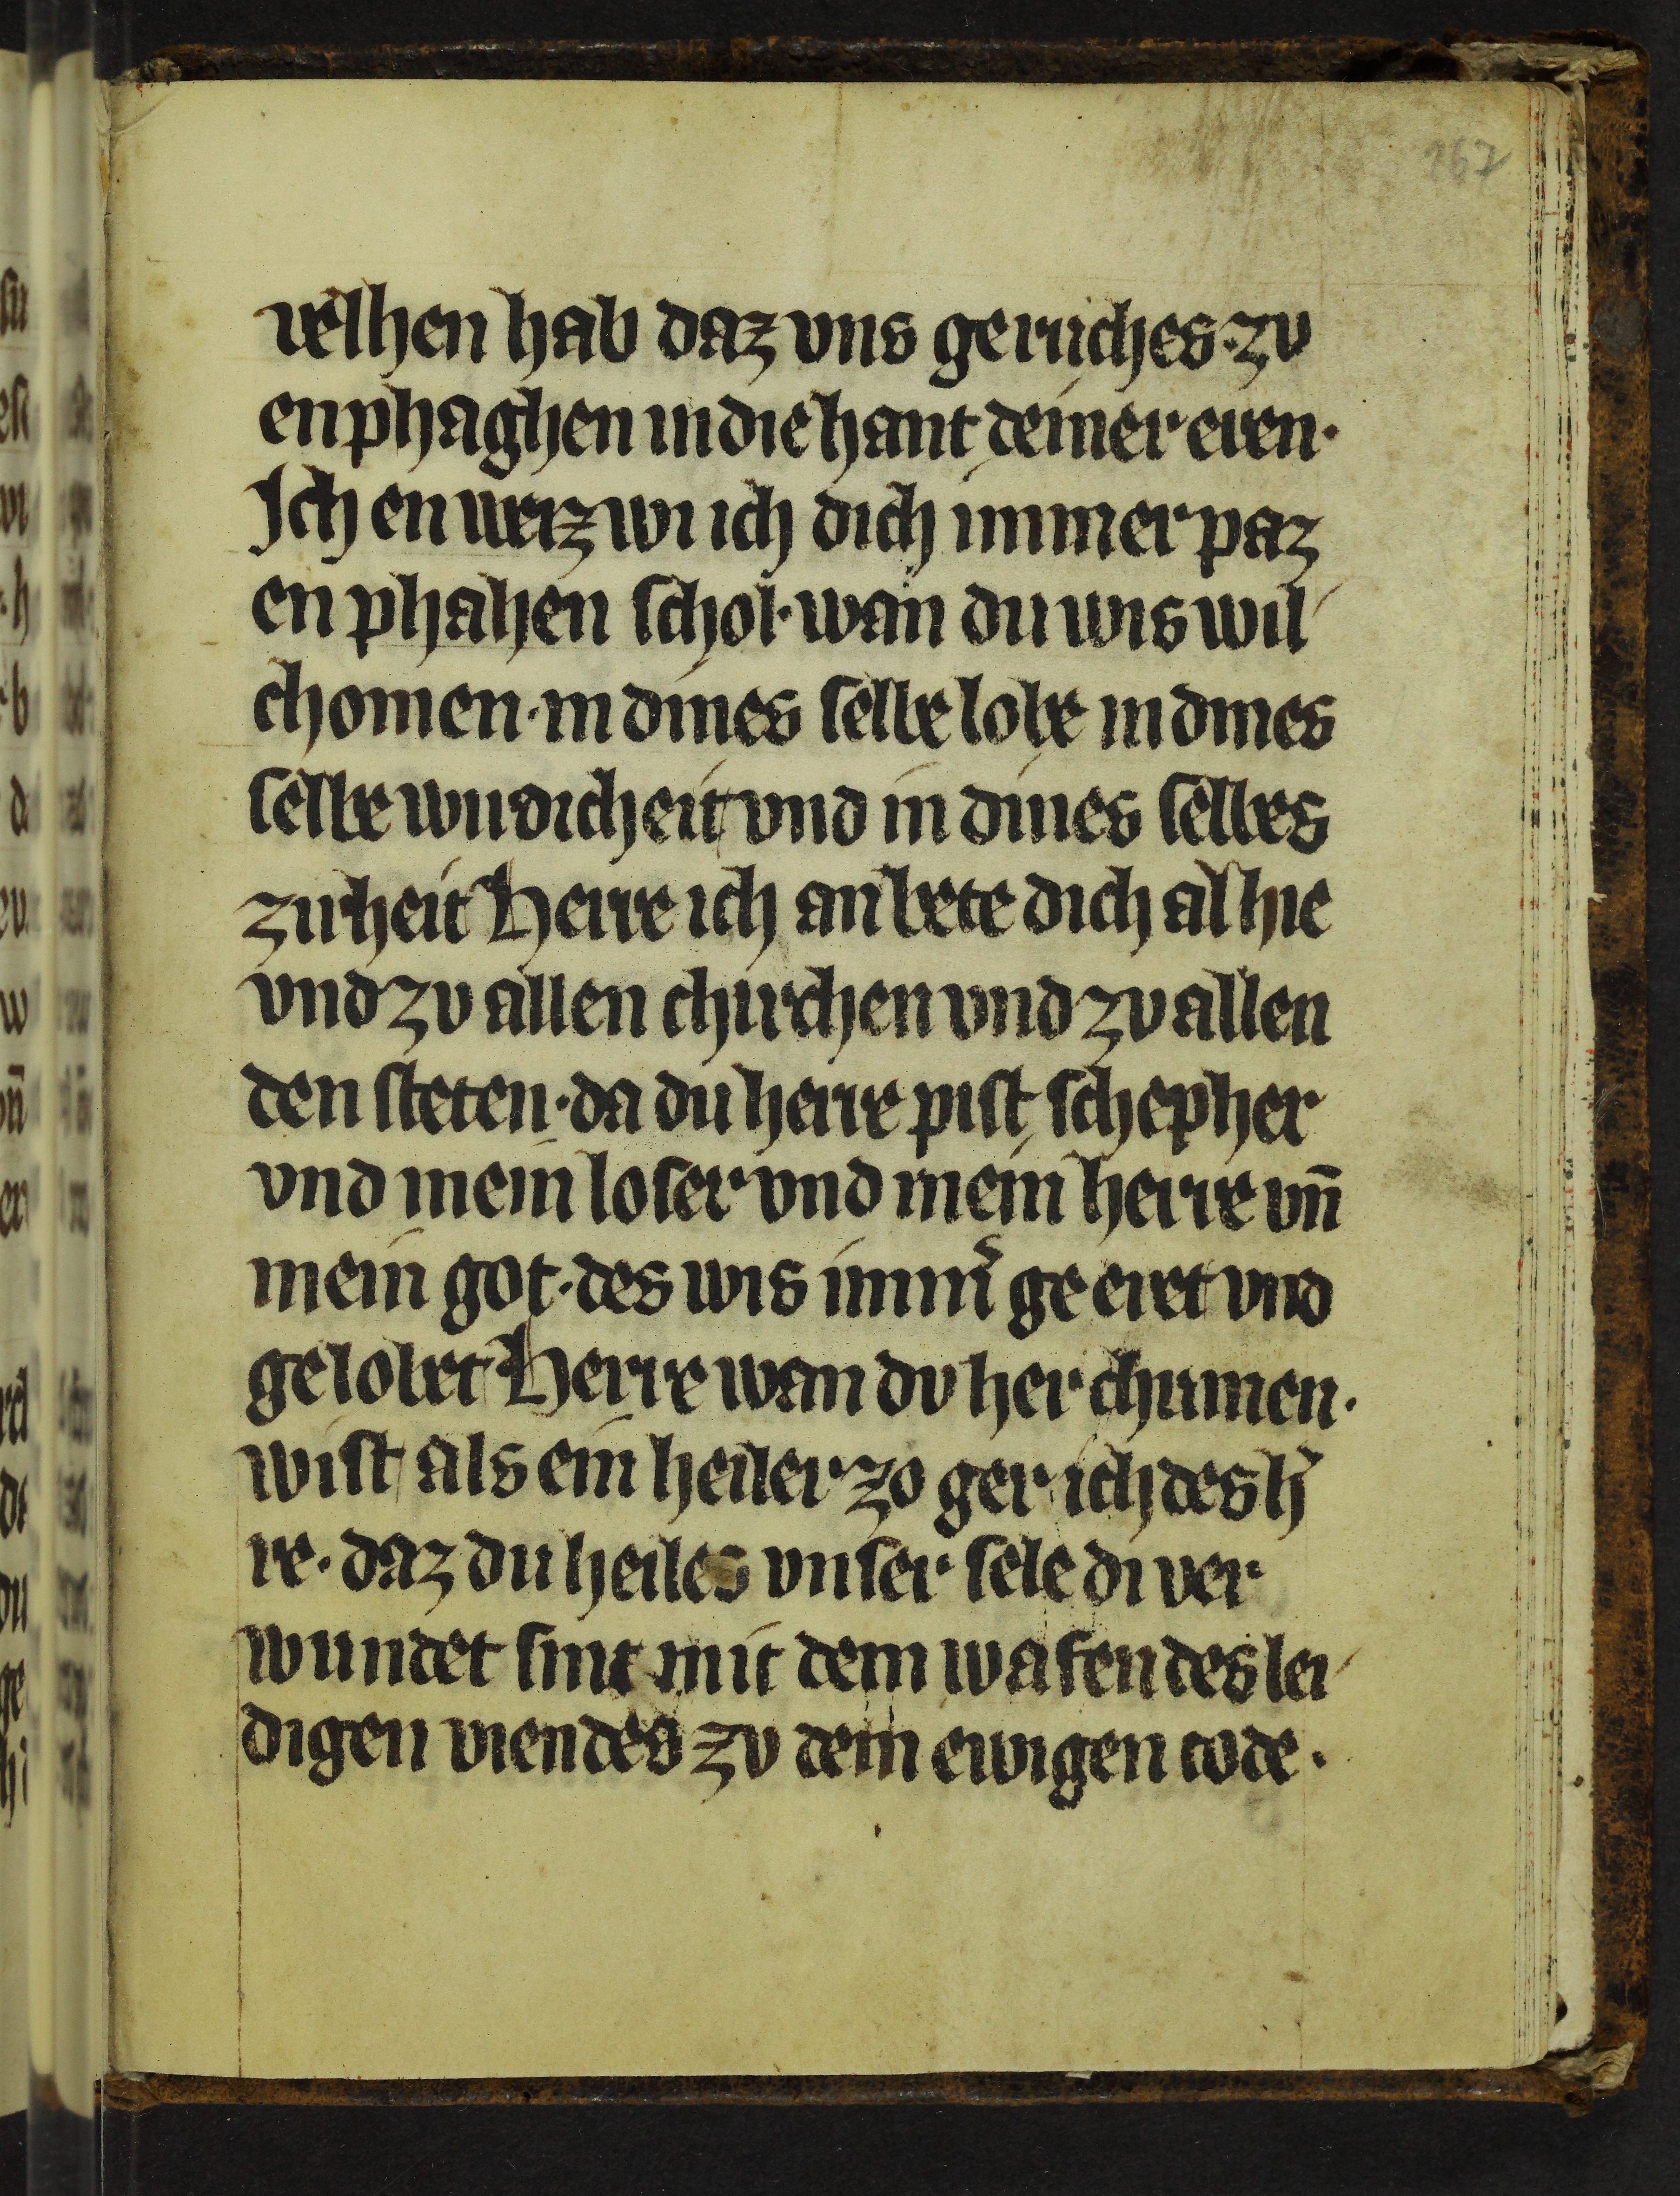 267
velhen hab daz vns geruches·zv
enphaghen in die hant deiner eren·
Jch en weiz wi ich dich immer paz
en phahen schol·wan du wis wil
chomen·in dines selbe lobe in dines
selbe wirdicheit vnd in dines selbes
zirheit Herre ich anbete dich alhie
vnd zv allen chirchen vnd zv allen
den steten·da du herre pist schepher
vnd mein loser vnd mein herre vn̄
mein got·des wis imm̉ ge eret vnd
gelobet Herre wan dv her chumen·
wist als ein heiler zo ger ich des h̉
re·daz du heiles vnser sele di ver
wundet sint mit dem wafen des lei
digen viendes zv dem ewigen tode·